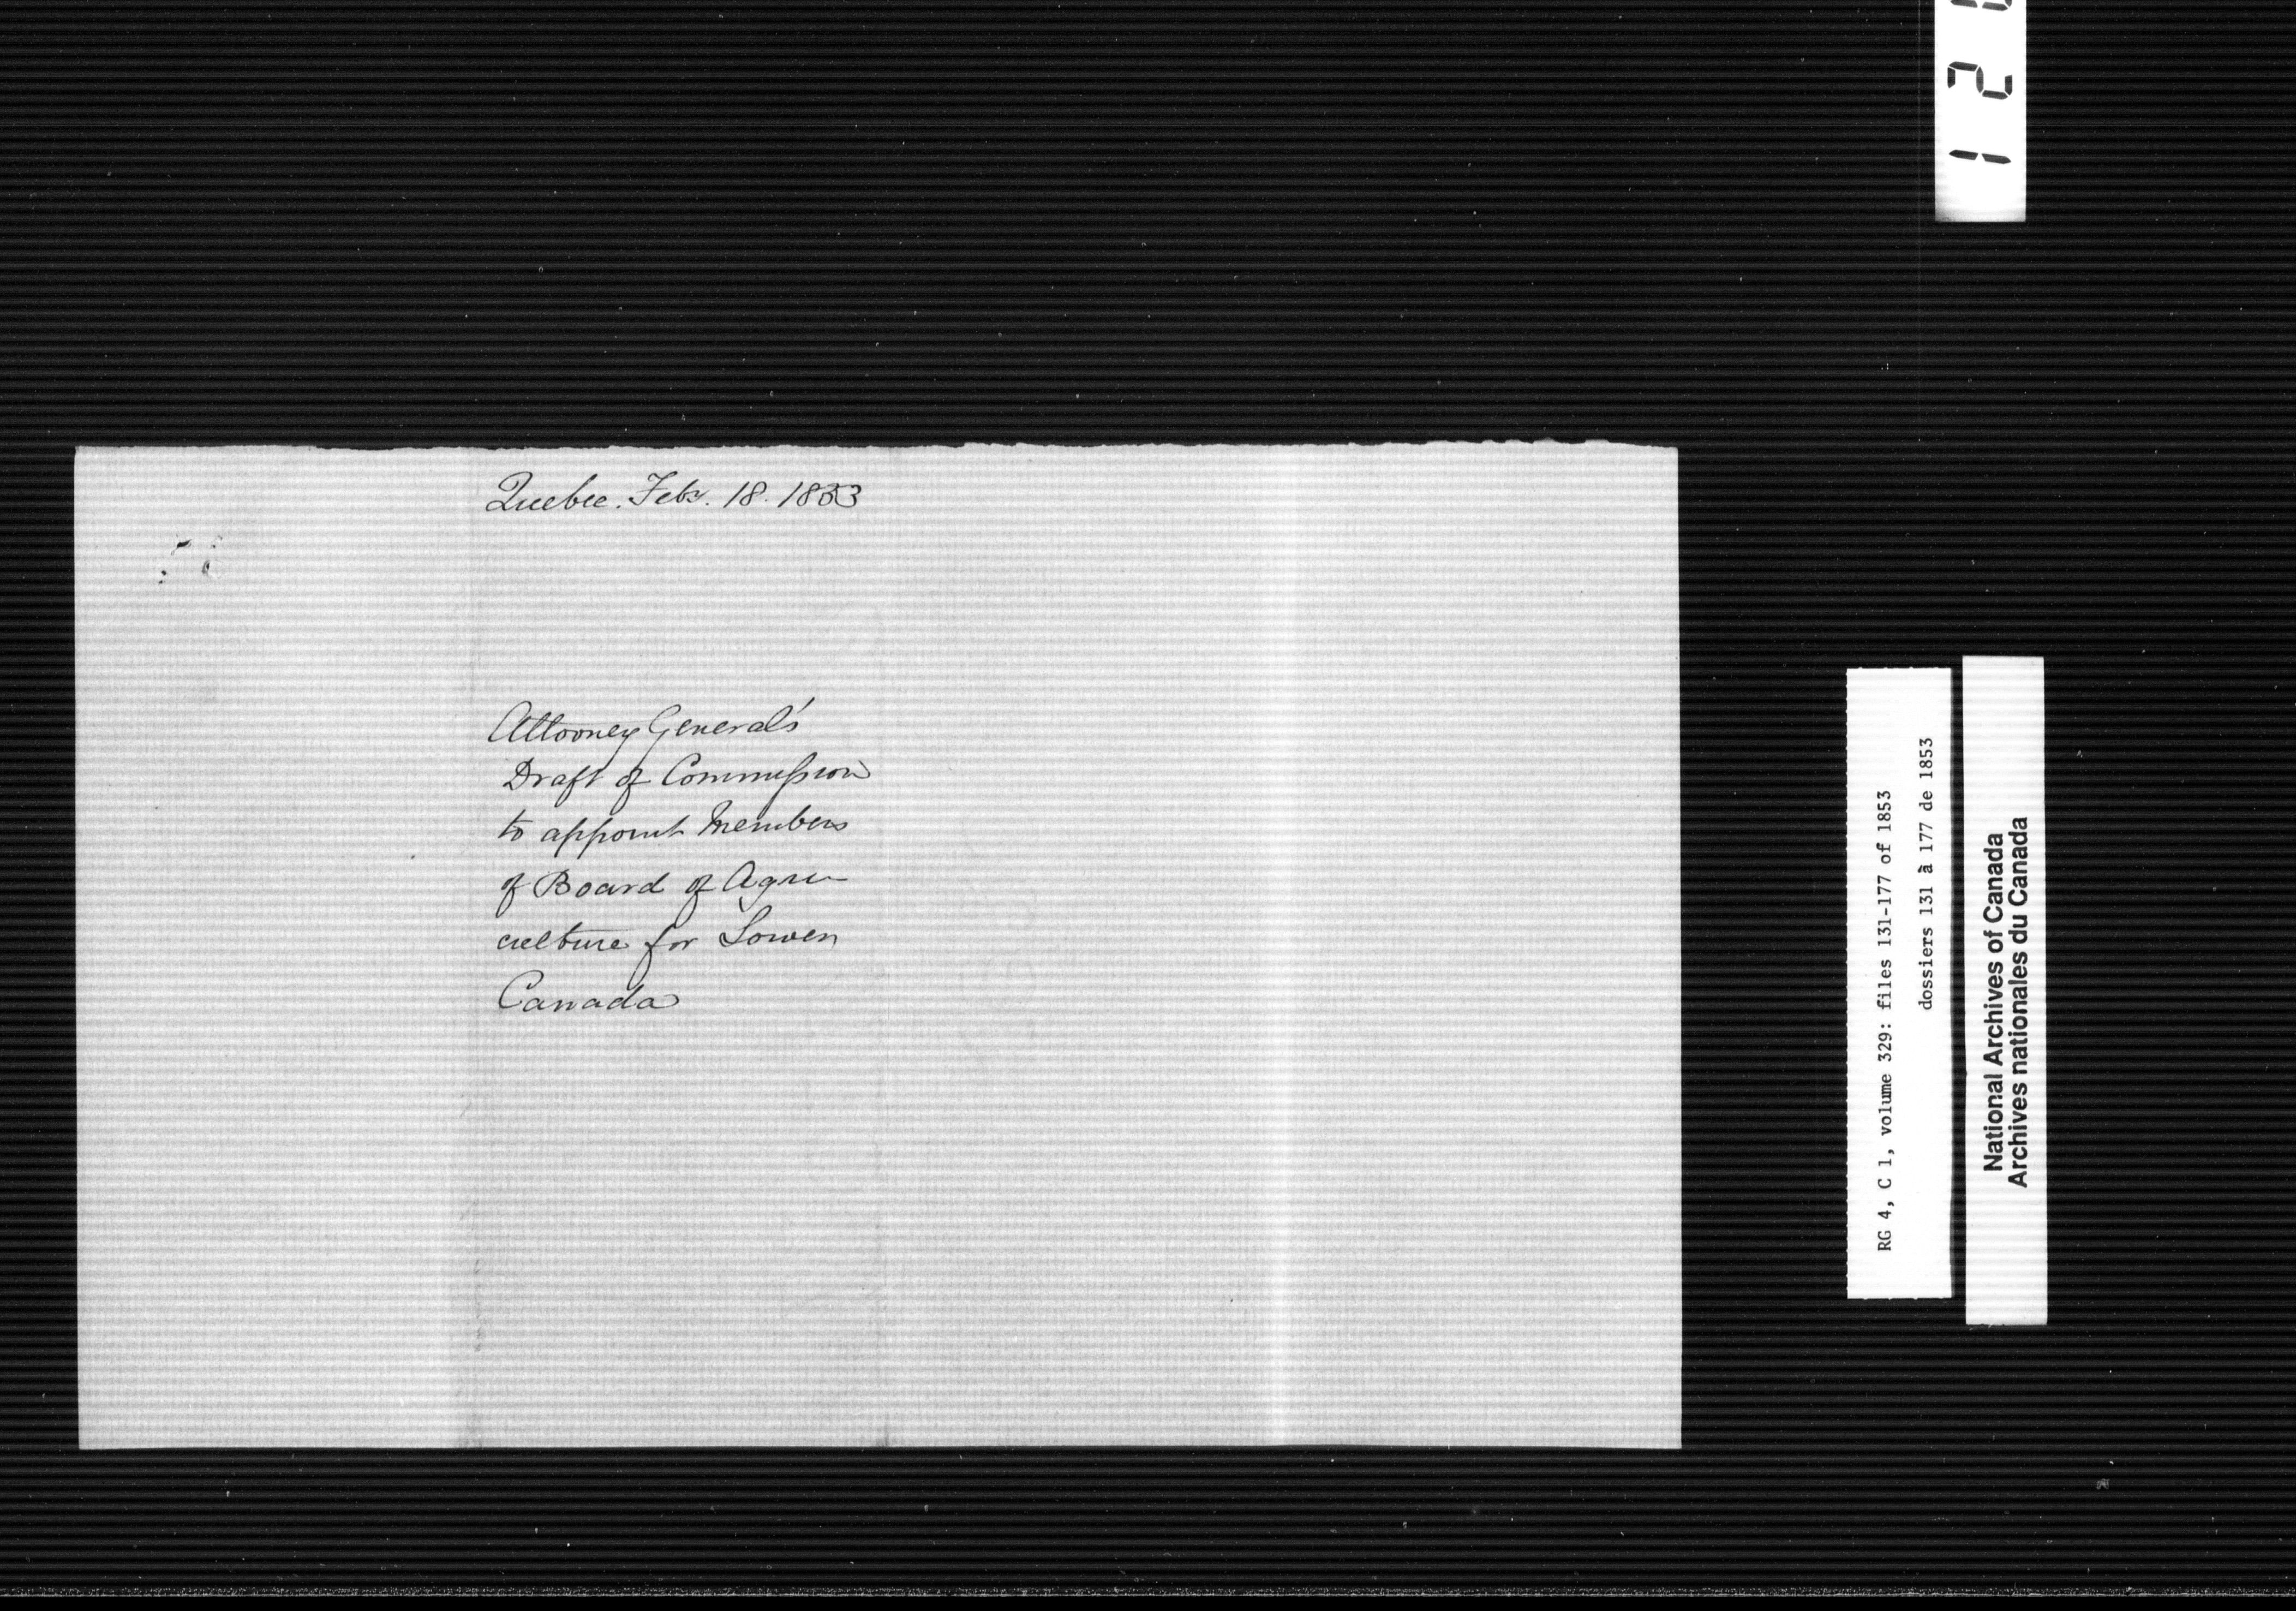 Quebec. Feby. 18. 1853
Attorney General's
Draft of Commission
to appoint Members
of Board of Agri-
culture for Lower
Canada
RG 4, C 1, volume 329: files 131-177 of 1853
dossiers 131 à 177 de 1853
National Archives of Canada
Archives nationales du Canada
1 2